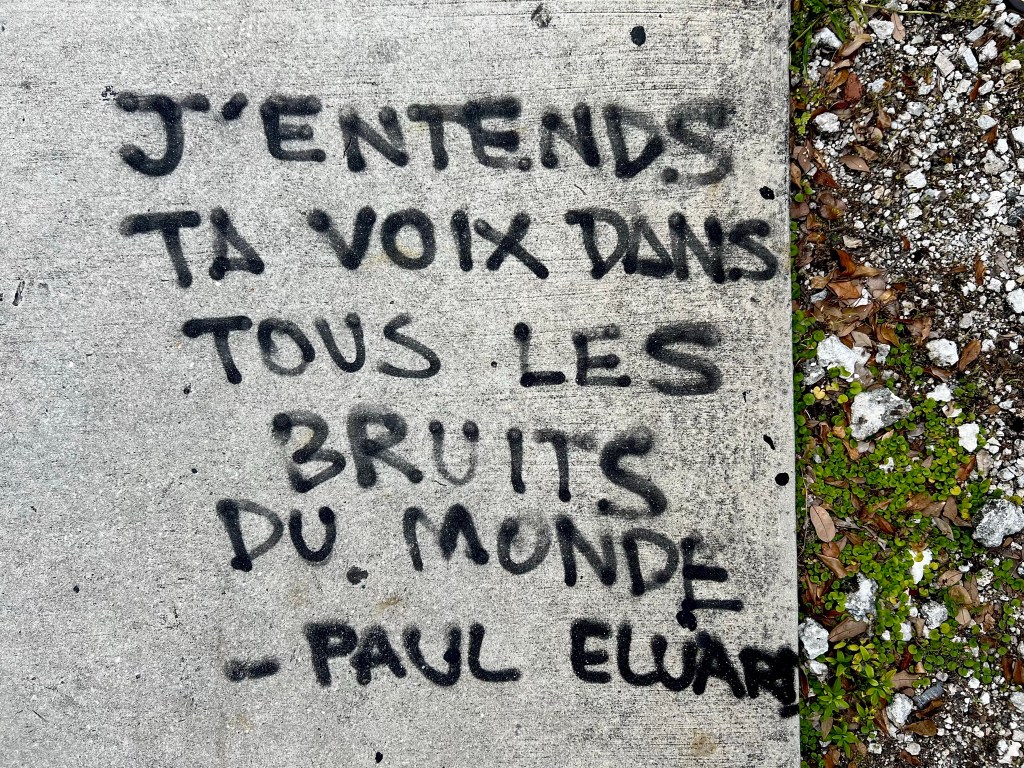 J'ENTENDS
TA VOIX DANS
TOUS LES
BRUITS
DU MONDE
- PAUL ELUARD